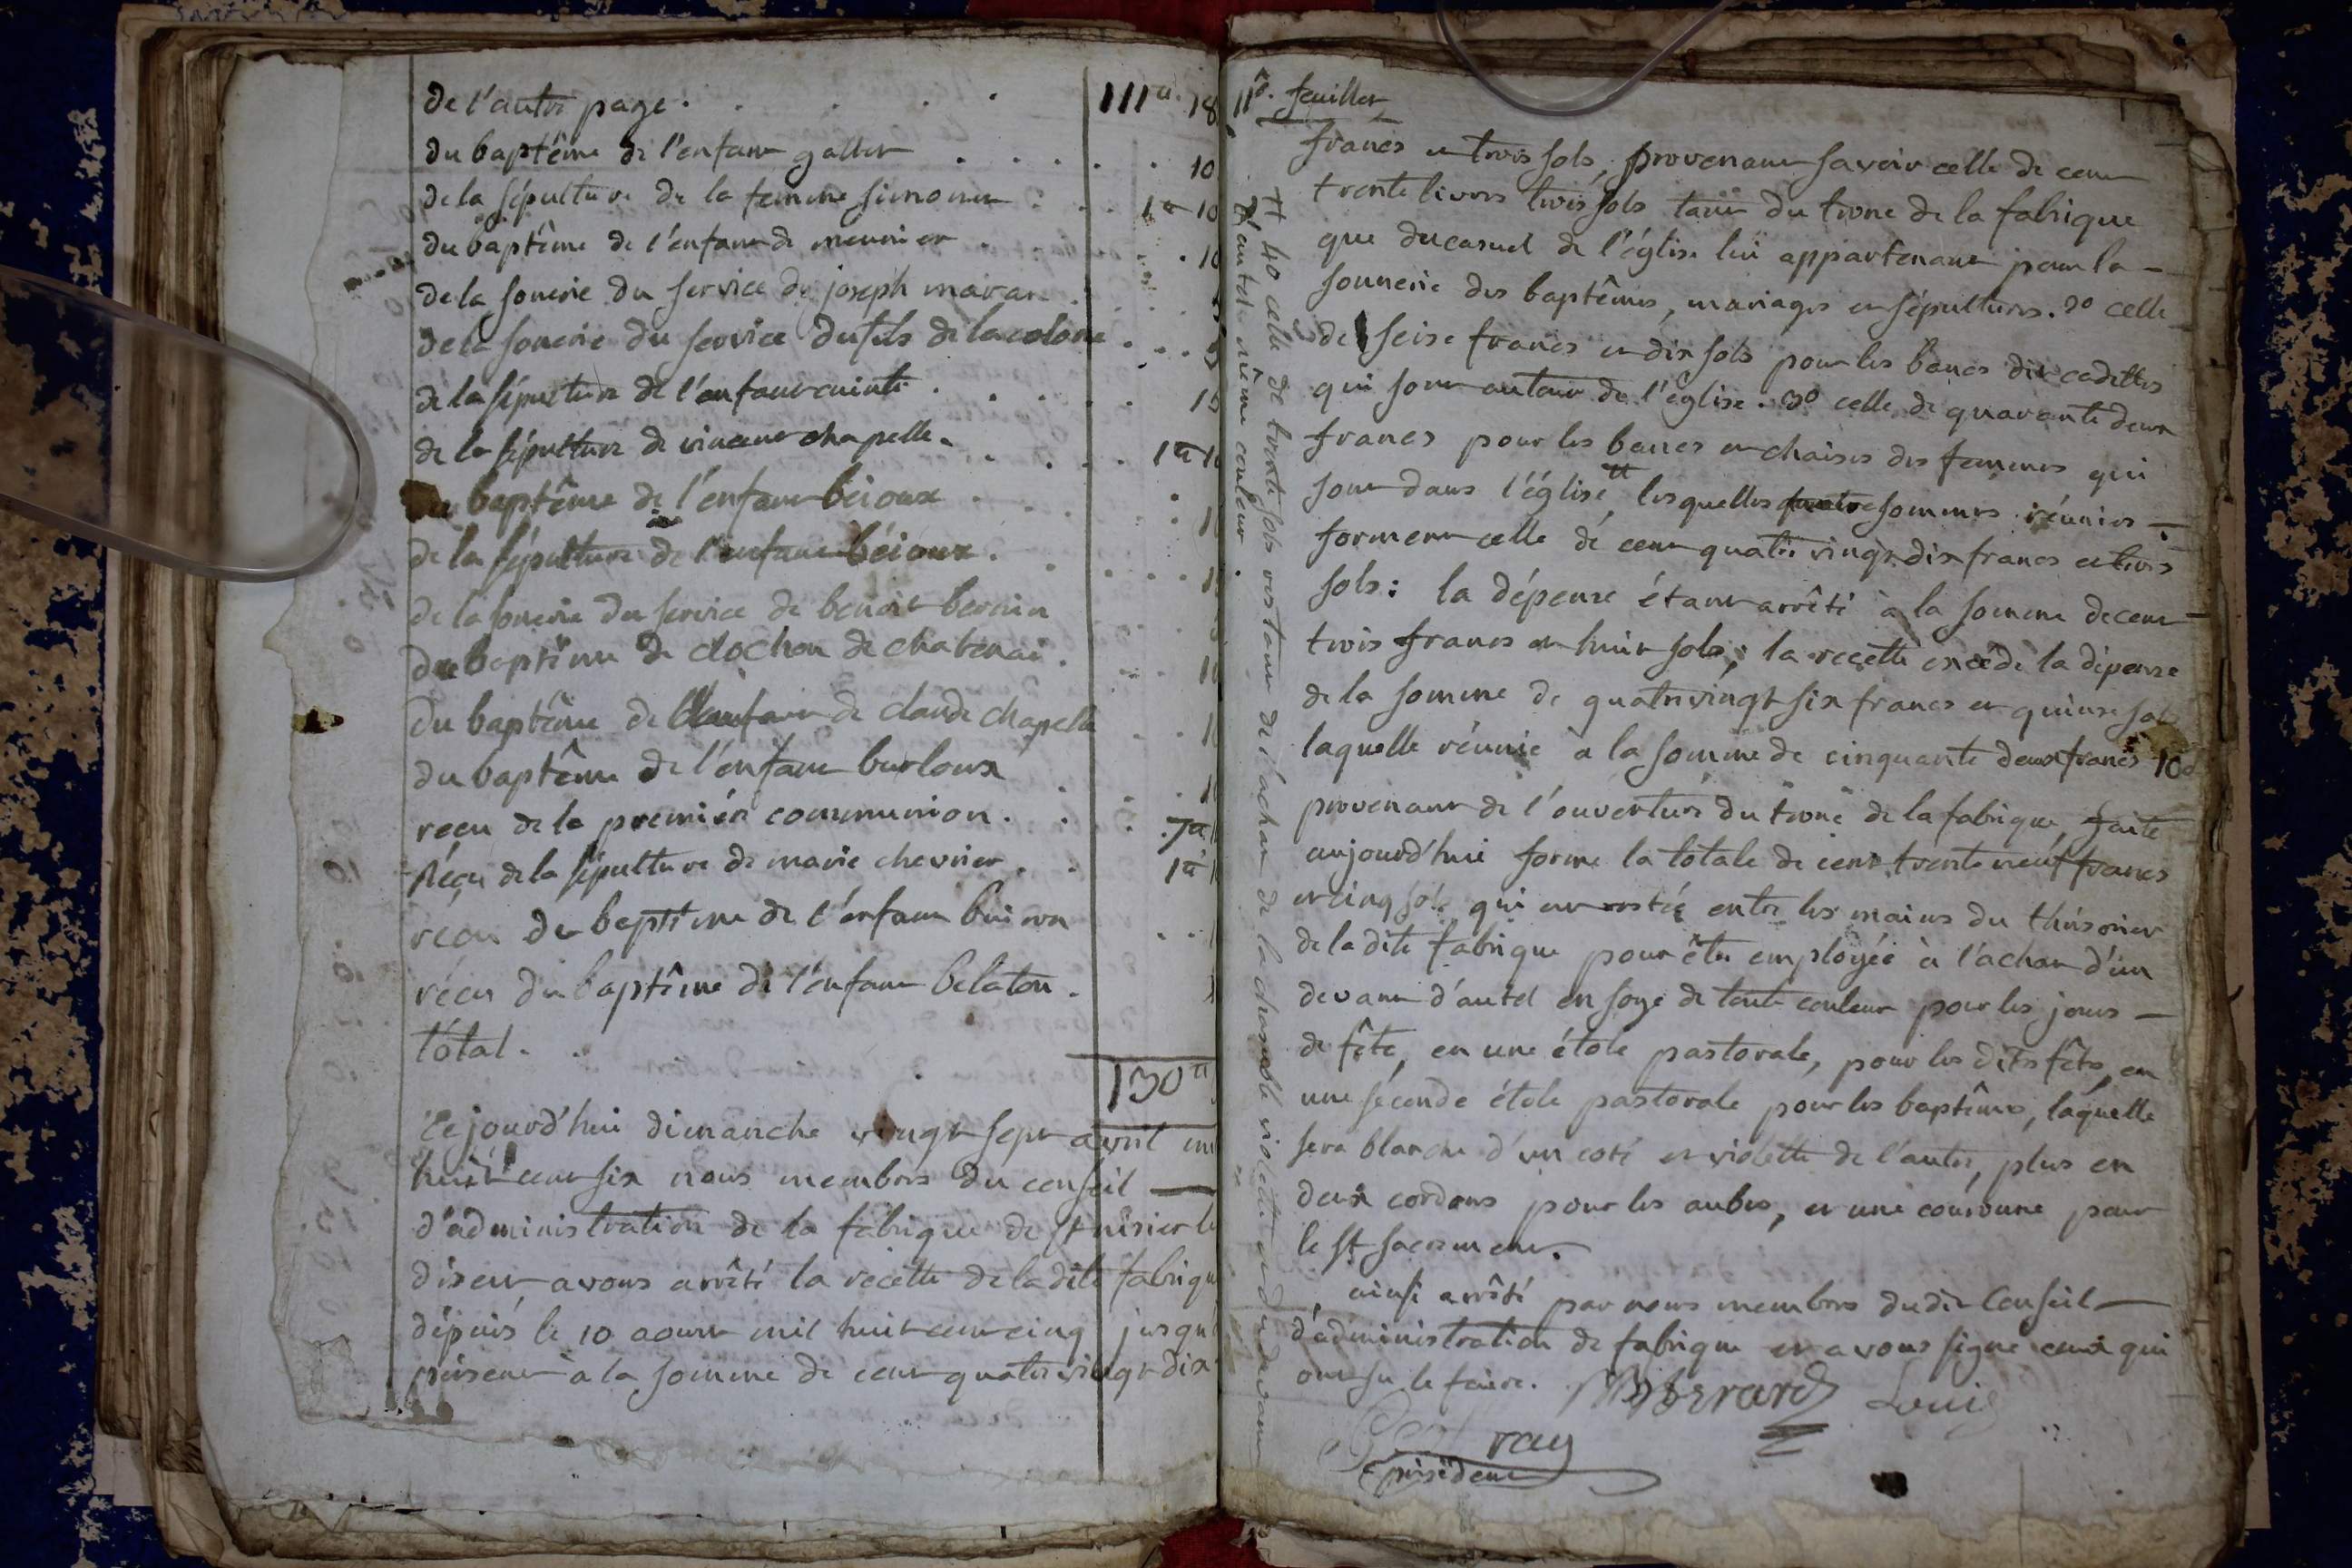 de l'autre page. . . . . 111tt. 18
du baptême de l'enfant gallet . . . . . 10
de la sépulture de la femme simonet . . . 1tt 10
du baptême de l'enfant de meunier . . 10
de la sonerie du service de joseph maran .
de la sonerie du service du fils de la colone . . .
de la sépulture de l'enfant . . . . . 15
de la sépulture de vincent chapelle. . . . . 1tt 1
du baptême de l'enfant béioux . . . .
de la sépulture de l'enfant béioux . . . . .
de la sonerie du service de benoit bernin
du baptême de clochon de chatenai . . . 10
du baptême de l'enfant de claude chapelle . . 1
du baptême de l'enfant burloux . . . 1
reçu de la premiére communion . . . 7tt
Réçu de la sépulture de marie chevrier . . 1tt
reçu du baptême de l'enfant buiron . .
réçu du baptême de l'enfant belaton .
total . .
130tt
Cejourd'hui dimanche vingt sept avril mil
huit cent six nous membres du conseil —
d'administration de la fabrique de st nisier le
disent avons arrêté la recette de la dite fabrique
dépuis le 10 aoust mil huit cent cinq jusqu'
présent à la somme de cent quatre vingt dix
11e. feuillet
francs et trois sols, provenant savoir celle de cent
trente livres trois sols tant du tronc de la fabrique
que du casuel de l'église lui appartenant pour la —
sonnerie des baptêmes, mariages et sépultures. 2o celle
de seise francs et dix sols pour les bancs dits cadettes
qui sont autour de l'église. 3o celle de quarante deux
francs pour les bancs et chaises des femmes qui
sont dans l'église, tt lesquelles sommes réunies —
forment celle de cent quatre vingt dix francs et trois
sols : la dépense étant arrêté à la somme de cent
trois francs et huit sols ; la recette excéde la dépense
de la somme de quatre vingt six francs et quinze sols
laquelle réunie a la somme de cinquante deux francs 10 s
provenant de l'ouverture du tronc de la fabrique, faite
aujourd'hui forme la totale de cent trente neuf francs
et cinq sols qui est restée entre les mains du thrésorier
de la dite fabrique pour être employée à l'achat d'un
devant d'autel en soye de toute couleur pour les jours —
de fête, en une étole pastorale, pour les dites fêtes, en
une séconde étole pastorale pour les baptêmes, laquelle
sera blanche d'un coté et violette de l'autre, plus en
deux cordons pour les aubes, et une couronne pour
le st sacrement.
ainsi arrêté par nous membres dudit Conseil —
d'administration de fabrique et avons signé ceux qui
ont su le faire. Berard Louis
ray
président
tt 4o celle de trente sols restant de l'achat de la chasuble violette et du devant
d'autel même couleur.